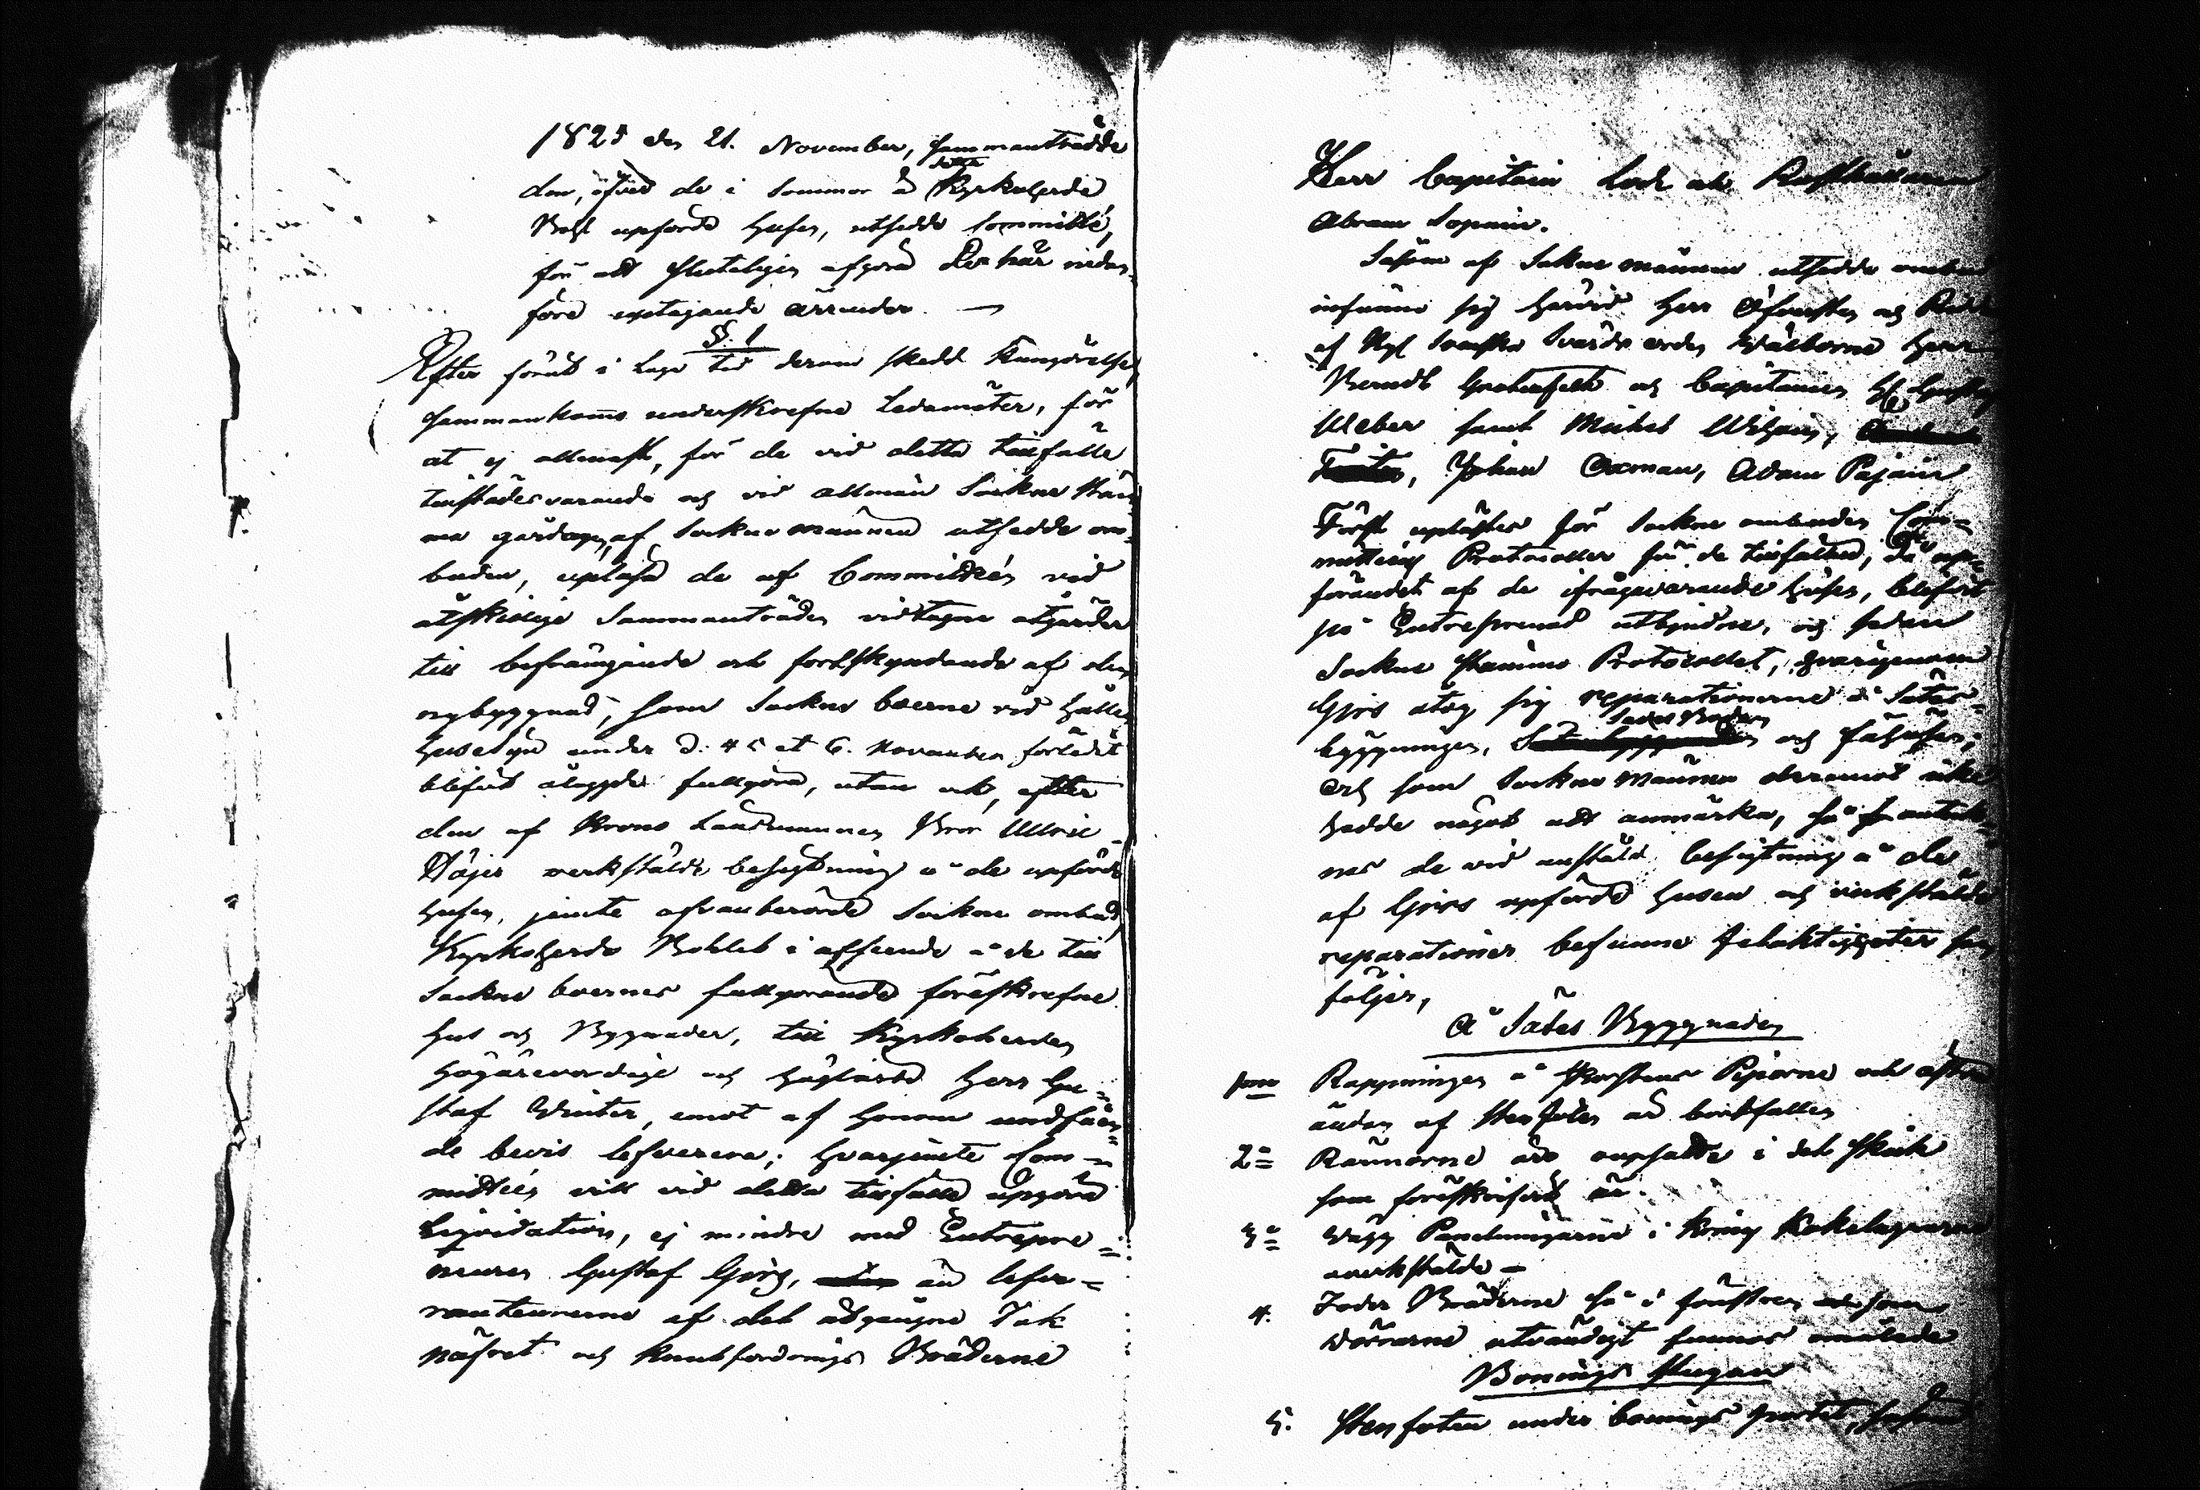 1825 den 21. November, sammanträdde
den, öfver de i Sommar å detta Kyrkoherde
Bohl upförde husen, utsedde Committé,
för att sluteligen afgöra De här nedan-
före uptagande ärender. —
§. 1
Efter förut i laga tid derom skedd Kungörelse,
sammankomo underskrefne Ledamöter, för
at ej allenast, för de vid detta tillfälle
tillstädesvarande och vid allmän Sockne Stäm-
ma gårdagen, af Sockne männen utsedde om-
buden, upläsa de af Committéen vid
åtskillige Sammanträden vidtagne åtgärder
till befrämjande och fortskyndande af den
nybyggnad, som Sockne boerne vid hållen
husesyn under d. 4 5 et 6. November förledit
blifvit ålagde fullgöra, utan ock, efter
den af Krono Länsmannen Bror Ulric
Höijer verkstälde besigtning å de upförde
husen, jemte ofvanberörde Sockne ombud,
Kyrkoherde Bohlet i afseende å de till
Sockne boernes fullgörande föreskrefne
hus och Byggnader, till Kyrkoherden
Högärevördige och Höglärde Herr Gu-
staf Winter, emot af honom undfåen-
de bevis lefverera; hvarjemte Com-
mittéen vill vid detta tillfälle upgöra
Liqvidation, ej mindre med Entrepre-
neuren Gustaf Girs, än lefve-
ranteurerne af det åtgångne Tak
näfret och Knutfodrings Bräderne
Herr Capitain Lode och Rusthållaren
Abram Sopain.
Såsom af Sockne männen utsedde ombud
infunno sig härvid Herr Öfversten och Ridd.
af Kgl Svenska Svärds orden Wälborne Herr
Berndt Grotenfelt och Capitainen H. Gustaf
Weber samt Mickel Wihain,
Johan Oxman, Adam Pajain
Först uplästes för Sockne ombuden Com-
mitteens Protocoller för de tillfällen, då up-
förandet af de ifrågavarande husen, blifvit
på Entreprenad utbjudne, och sedan
Sockne Stämmo Protocollet, hvarigenom
Girs åtog sig reparationerne å Sätes-
byggningen, Sädes Boden och fähusen;
och som Sockne männen deremot icke
hade något att anmärka, så antek-
nas de vid anstäld besigtning å de
af Girs upförde husen och verkstälde
reparationer befunne felaktigheter som
följer,
Å Sätes Byggnaden
1mo Rappningen å Skorstens Piporne och östra
ändan af Stenfoten är bortfallen
2o Rännorne äro upsatte i det skick
som föreskrifvit är.
3o Vägg Panelningarne i kring Kakelugnarne
overkstälde —
4. Foder Bräderne så i fönstren som
dörrarne utvändigt funnos omålade
Bonings Stugan
5. Stenfoten under bonings huset,